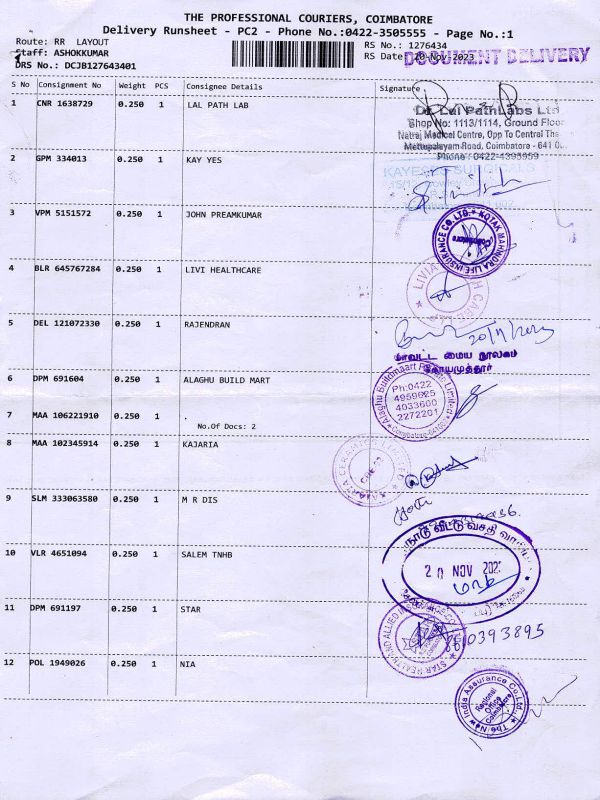 THE PROFESSIONAL COURIERS, COIMBATORE
Delivery Runsheet - PC2 - Phone No.:0422-3505555 - Page No.:1
Route: RR LAYOUT
RS No.: 1276434
Staff: ASHOKKUMAR
RS Date: 20-Nov-2023
DOCUMENT DELIVERY
DRS No.: DCJB127643401
S No Consignment No Weight PCS Consignee Details Signature
1 CNR 1638729 0.250 1 LAL PATH LAB
Dr. Lal PathLabs Ltd
Shop No: 1113/1114, Ground Floor
Natraj Medical Centre, Opp To Central The
Mettupalayam Road, Coimbatore - 641 0
Phone : 0422-4395959
2 GPM 334013 0.250 1 KAY YES
KAYES SURGICALS
3 VPM 5151572 0.250 1 JOHN PREAMKUMAR
KOTAK MAHINDRA LIFE INSURANCE CO. LTD.
Coimbatore
4 BLR 645767284 0.250 1 LIVI HEALTHCARE
5 DEL 121072330 0.250 1 RAJENDRAN
20/11/2023
மாவட்ட மைய நூலகம்
கோயமுத்தூர்
6 DPM 691604 0.250 1 ALAGHU BUILD MART
Alaghu Buildmaart Private Limited
Ph:0422
4959625
4033600
2272201
7 MAA 106221910 0.250 1 .
No.Of Docs: 2
8 MAA 102345914 0.250 1 KAJARIA
9 SLM 333063580 0.250 1 M R DIS
10 VLR 4651094 0.250 1 SALEM TNHB
நாடு வீட்டு வசதி
20 NOV 202
11 DPM 691197 0.250 1 STAR
STAR HEALTH AND ALLIED INSURANCE
8610393895
12 POL 1949026 0.250 1 NIA
The New India Assurance Co.Ltd.
Regional
Office
Coimbatore